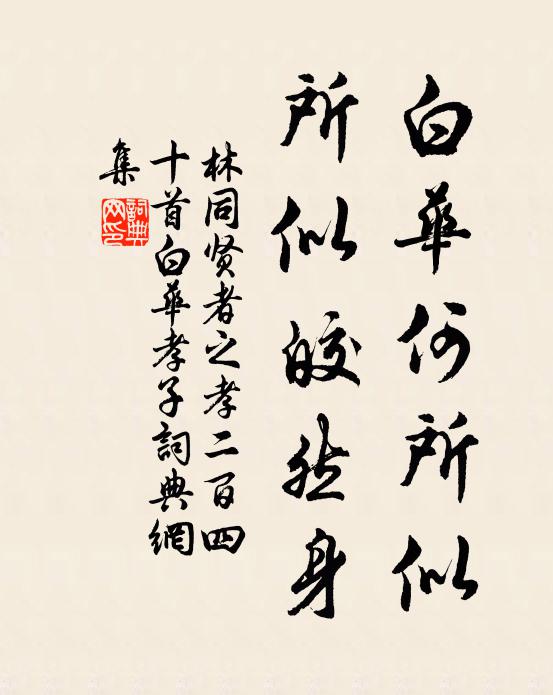 白華何所似
所似皎然身
林同贤者之孝二百四
十首白華孝子詞典網
集
詞典
网印